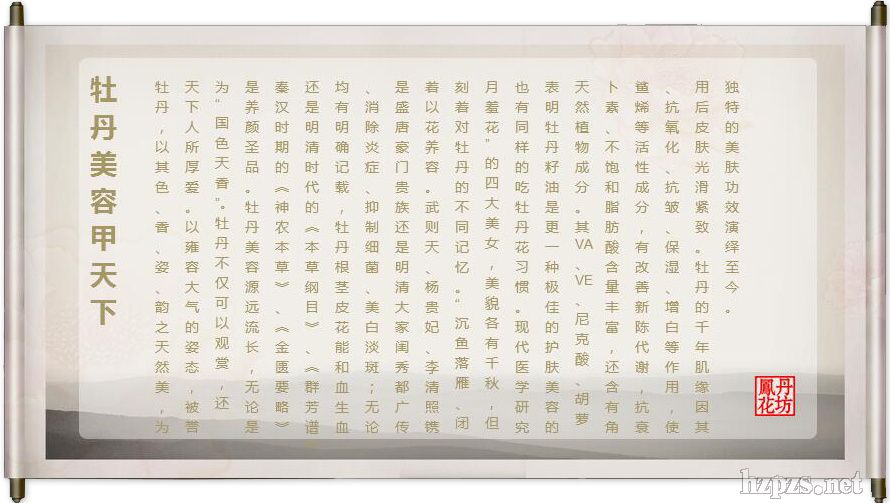 牡丹美容甲天下
牡丹，以其色、香、姿、韵之天然美，为
天下人所厚爱。以雍容大气的姿态，被誉
为“国色天香”。牡丹不仅可以观赏，还
是养颜圣品。牡丹美容源远流长，无论是
秦汉时期的《神农本草》、《金匮要略》
还是明清时代的《本草纲目》、《群芳谱
均有明确记载，牡丹根茎皮花能和血生血
、消除炎症、抑制细菌、美白淡斑；无论
是盛唐豪门贵族还是明清大家闺秀都广传
着以花养容。武则天、杨贵妃、李清照镌
刻着对牡丹的不同记忆。“沉鱼落雁、闭
月羞花”的四大美女，美貌各有千秋，但
也有同样的吃牡丹花习惯。现代医学研究
表明牡丹籽油是更一种极佳的护肤美容的
天然植物成分。其VA、VE、尼克酸、胡萝
卜素、不饱和脂肪酸含量丰富，还含有角
鲨烯等活性成分，有改善新陈代谢，抗衰
、抗氧化、抗皱、保湿、增白等作用，使
用后皮肤光滑紧致。牡丹的千年肌缘因其
独特的美肤功效演绎至今。
鳳丹
花坊
hzpzs.net